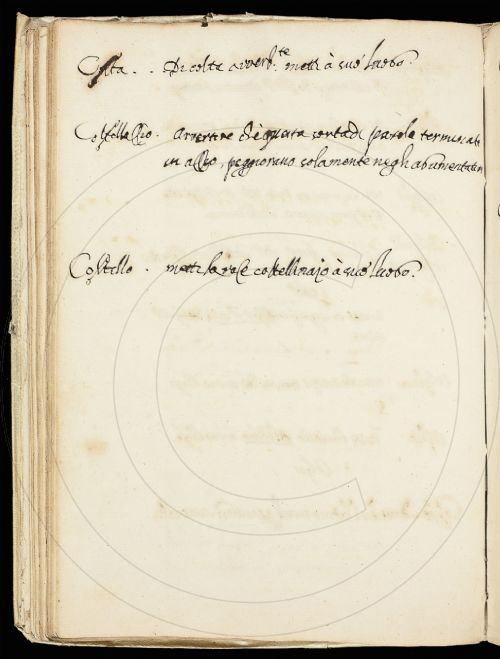 Colta . . Di colta avverb.te metti à suo luogo.
Coltellaccio . avvertire ch'è questa sorta di parole terminate
in accio, peggiorano solamente negli aumentativi
Coltello . metti la voce coltellinajo à suo luogo.